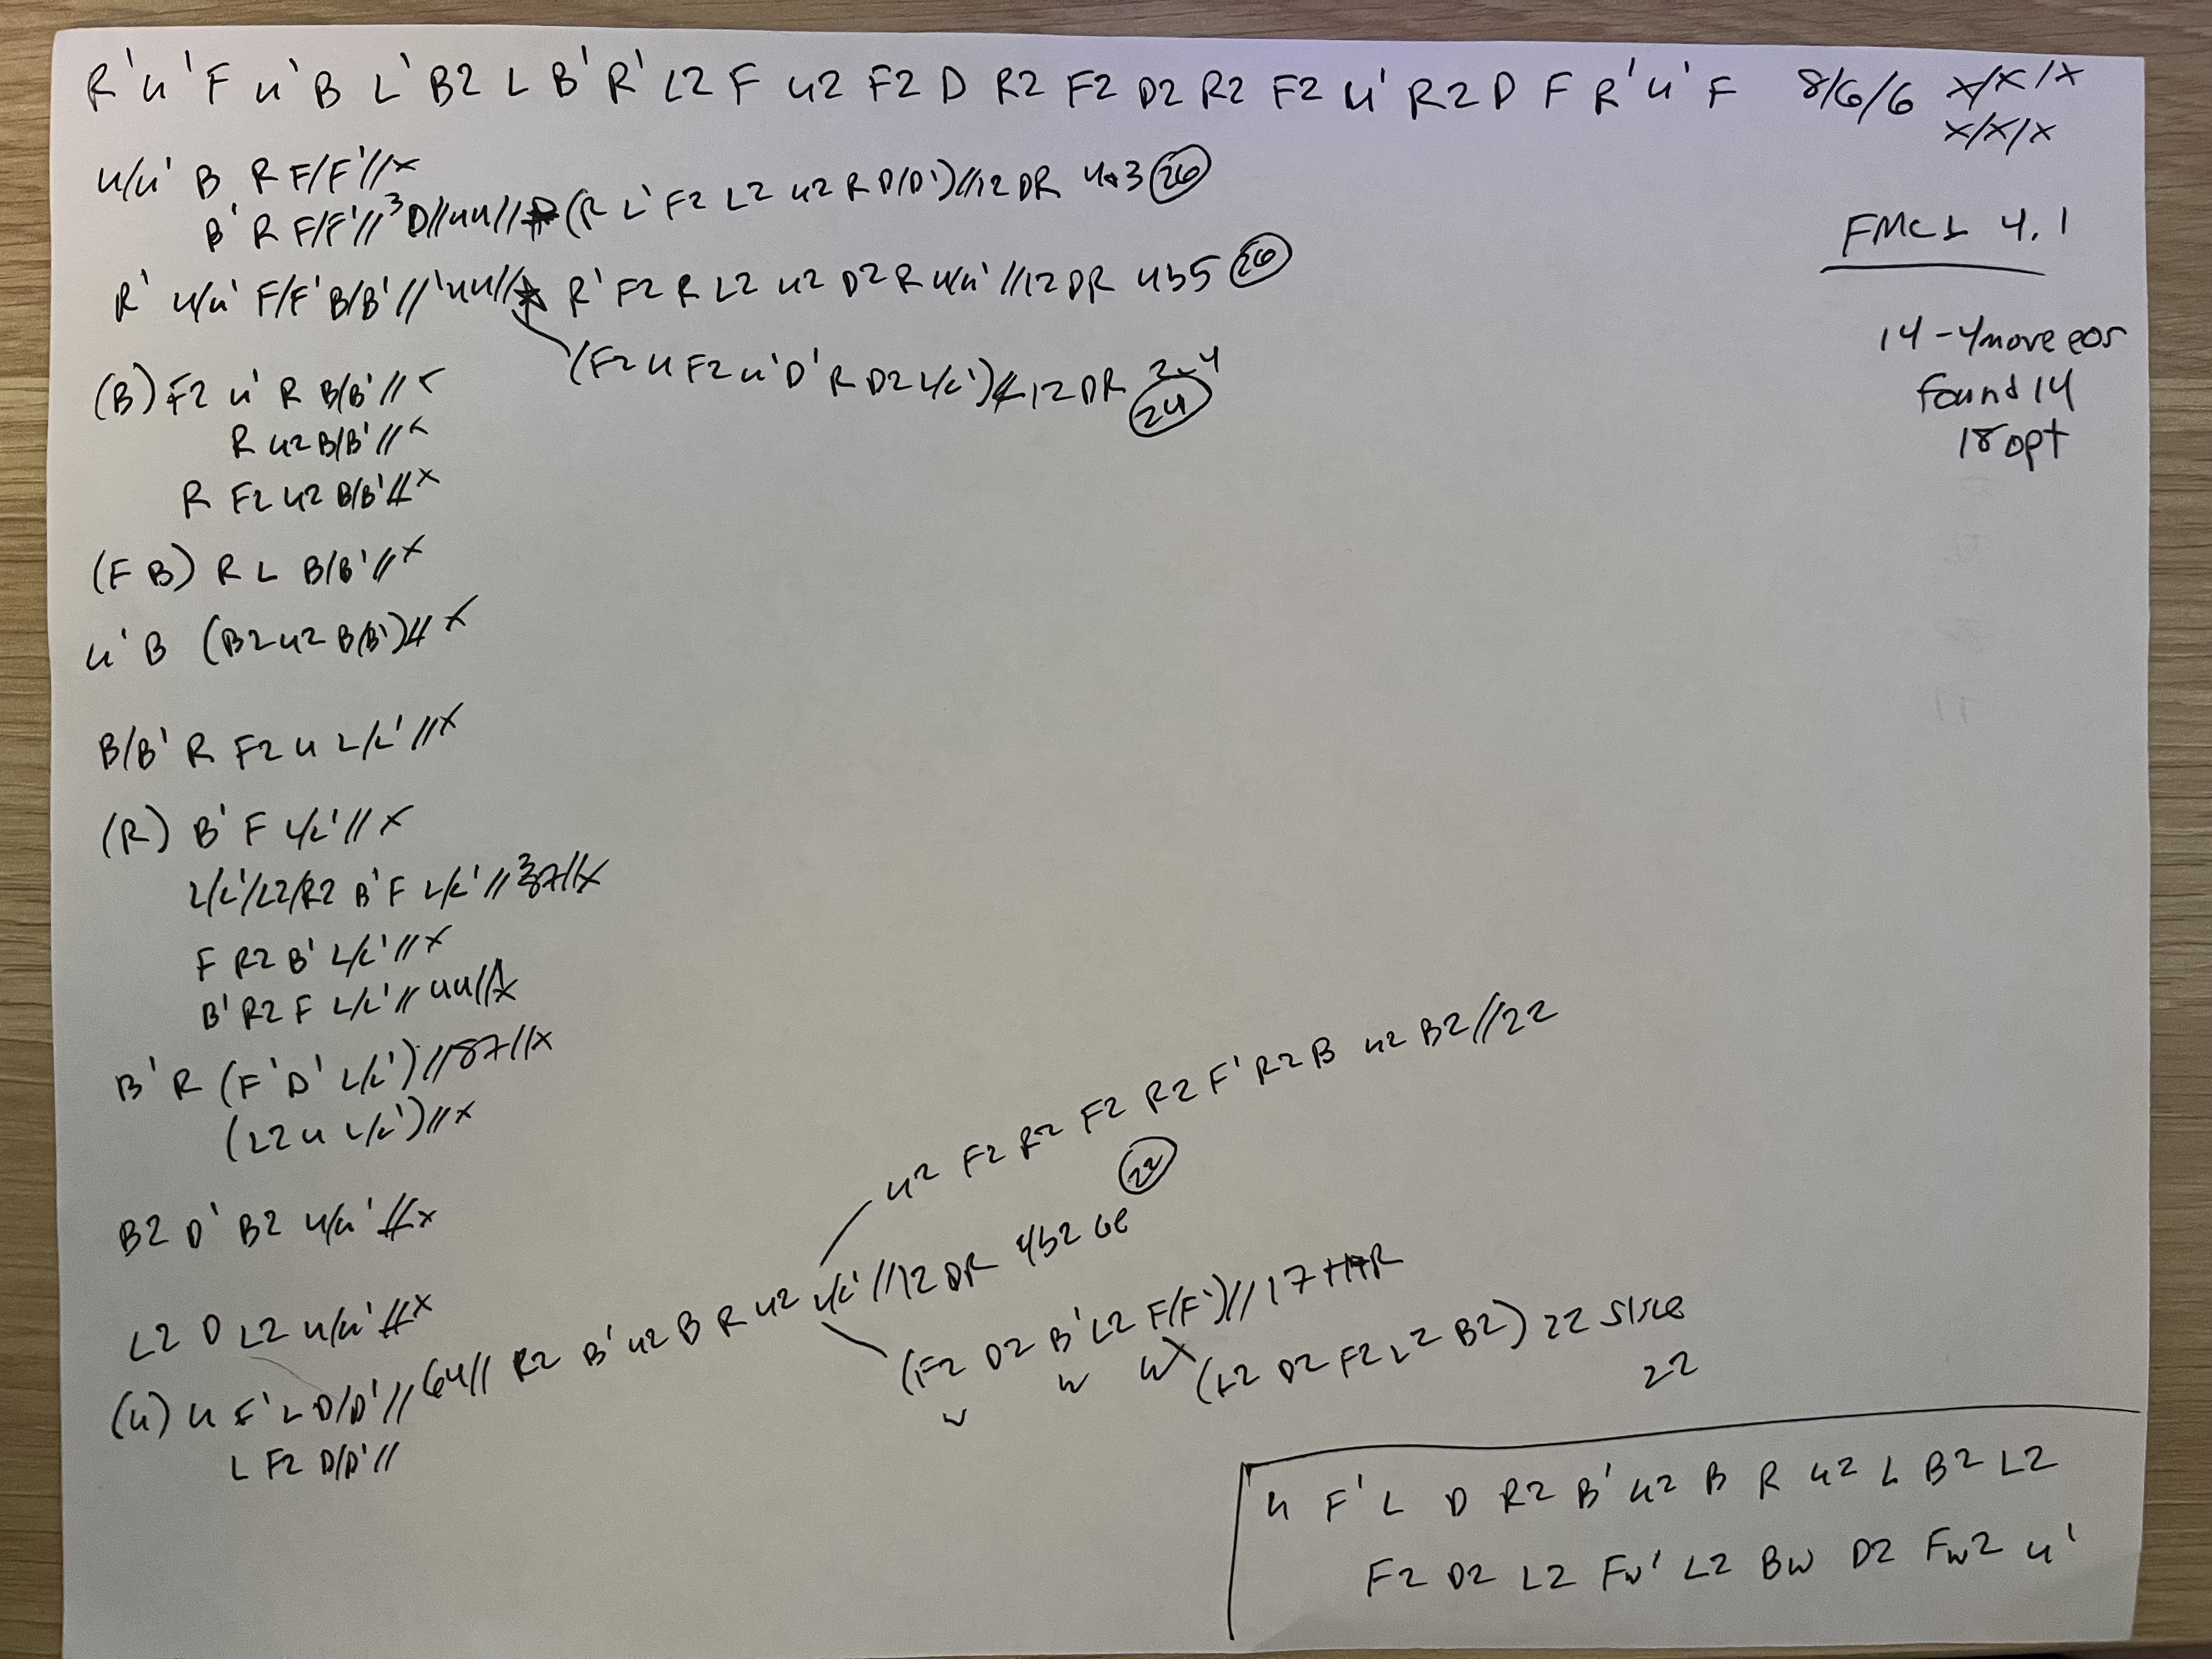 R' U' F U' B L' B2 L B' R' L2 F U2 F2 D R2 F2 D2 R2 F2 U' R2 D F R' U' F 8/6/6 x/x/x
x/x/x
U/U' B R F/F' // x
B' R F/F' // 3 D // 44 // (R L' F2 L2 U2 R D/D') // 12 DR 4a3 26
R' U/U' F/F' B/B' // 44 // R' F2 R L2 U2 D2 R U/U' // 12 DR 4b5 26
(F2 U F2 U' D' R D2 L/L') // 12 DR 2c4
24
FMCL 4.1
14 - 4move eos
found 14
18 opt
(B) F2 U' R B/B' // x
R U2 B/B' // x
R F2 U2 B/B' // x
(F B) R L B/B' // x
U' B (B2 U2 B/B') // x
B/B' R F2 U L/L' // x
(R) B' F L/L' // x
L/L'/L2/R2 B' F L/L' // 87 // x
F R2 B' L/L' // x
B' R2 F L/L' // 44 // x
B' R (F' D' L/L') // 87 // x
(L2 U L/L') // x
B2 D' B2 U/U' // x
L2 D L2 U/U' // x
(U) U F' L D/D' // 64 // R2 B' U2 B R U2 L/L' // 12 DR 4b2 6e 22
L F2 D/D' //
U2 F2 R2 F2 R2 F' R2 B U2 B2 // 22
(F2 D2 B' L2 F/F') // 17 HTR
w w w
(L2 D2 F2 L2 B2) 22 slice
22
U F' L D R2 B' U2 B R U2 L B2 L2
F2 D2 L2 Fw' L2 Bw D2 Fw2 U'